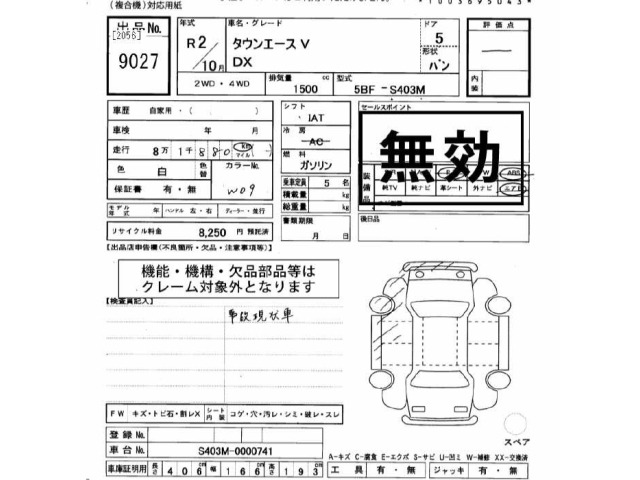 (複合機)対応用紙
*1003695043*
出品No.
[2056]
9027
年式
R2/10月
車名・グレード
タウンエース V
DX
ドア
5
形状
バン
評価点
内装
2WD・4WD
排気量
1500 cc
型式
5BF-S403M
車歴 自家用・( )
車検 年 月
走行 8万 1千 880 km マイル
色 白 色替 カラーNo. W09
保証書 有・無
モデル年式 年 ハンドル 左・右 ディーラー・並行
リサイクル料金 8,250 円 預託済
シフト
IAT
冷房
AC
燃料
ガソリン
乗車定員 5 名
積載量 kg
総重量 kg
書類期限
月 日
セールスポイント
無効
装備品
W ABS
純TV 純ナビ 革シート 外ナビ エアB
後日品
【出品店申告欄(不良箇所・欠品・注意事項等)】
機能・機構・欠品部品等は
クレーム対象外となります
【検査員記入】
事故現状車
FW キズ・トビ石・割レX シート内装 コゲ・穴・汚レ・シミ・破レ・スレ
登録No.
車台No. S403M-0000741
車庫証明用 長さ 406cm 幅 166cm 高さ 193cm
スペア
A-キズ C-腐食 E-エクボ S-サビ U-凹ミ W-補修 XX-交換済
工具 有・無 ジャッキ 有・無